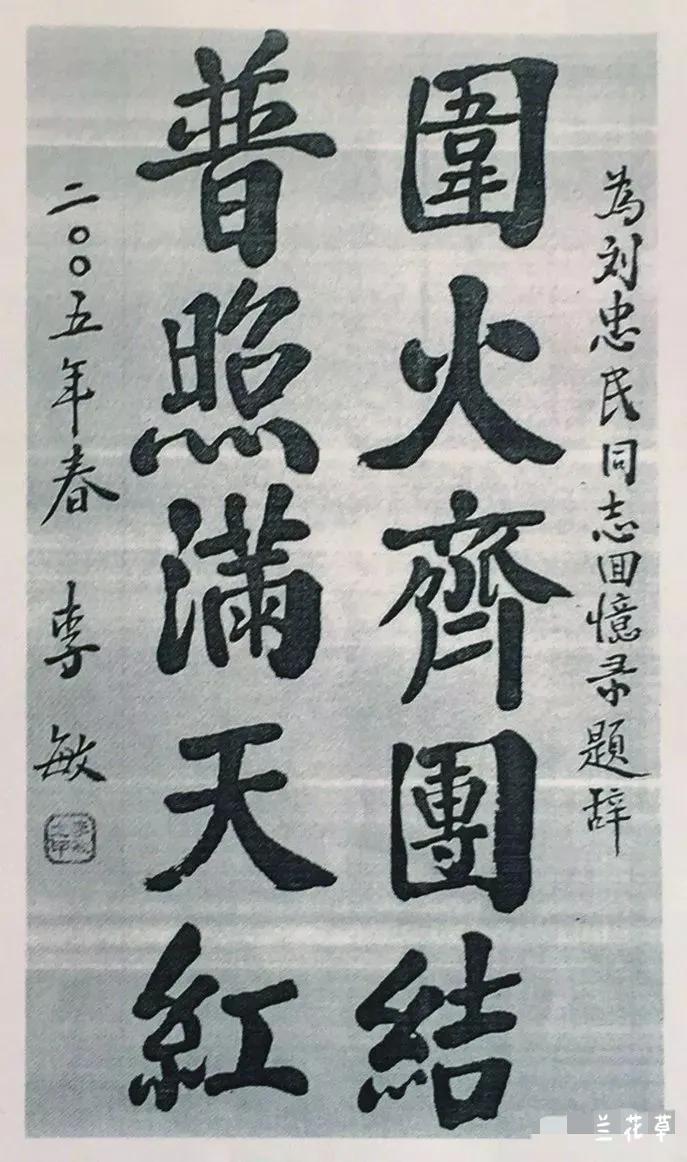 為刘忠民同志回憶录題辞
圍火齊團結
普照滿天紅
二〇〇五年春 李敏
兰花草